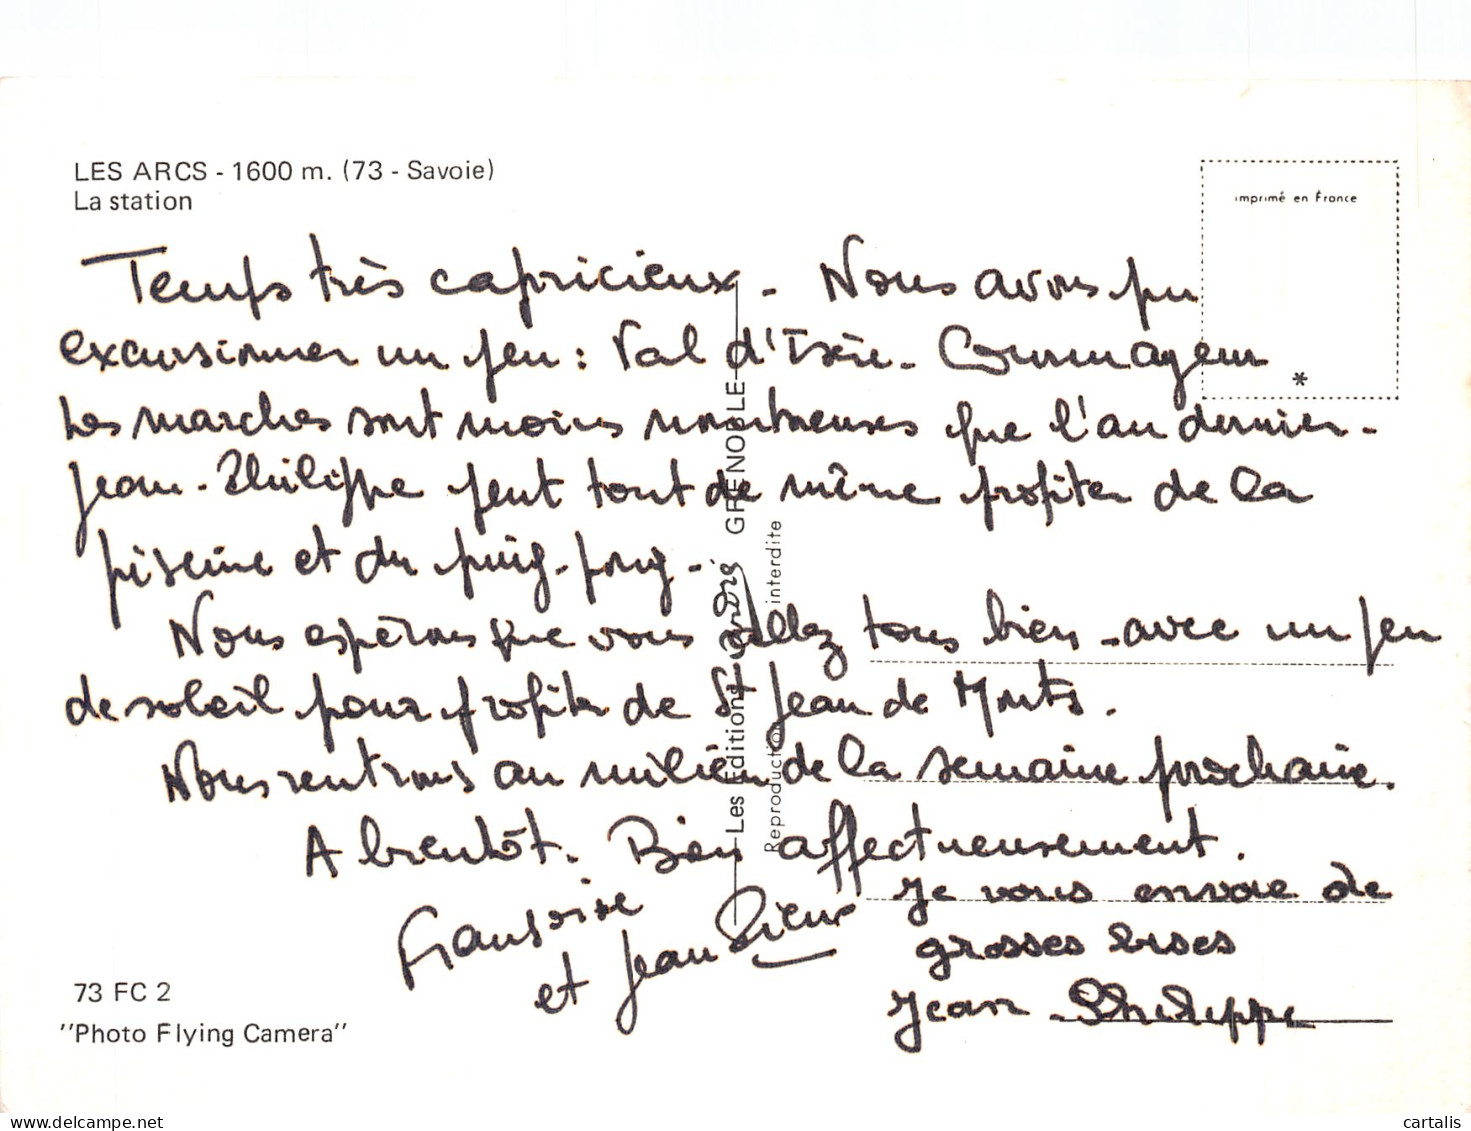 LES ARCS - 1600 m. (73 - Savoie)
La station
imprimé en France
*
Temps très capricieux - Nous avons pu
excursionner un peu : Val d'Isère - Courmayeur
Les marches sont moins nombreuses que l'an dernier -
Jean-Philippe peut tout de même profiter de la
piscine et du ping-pong -
Nous espérons que vous allez tous bien - avec un peu
de soleil pour profiter de St Jean de Monts.
Nous rentrons au milieu de la semaine prochaine.
A bientôt. Bien affectueusement.
Françoise
et Jean Pierre
Je vous envoie de
grosses bises
Jean-Philippe
Les Editions André GRENOBLE
Reproduction interdite
73 FC 2
"Photo Flying Camera"
www.delcampe.net
cartalis